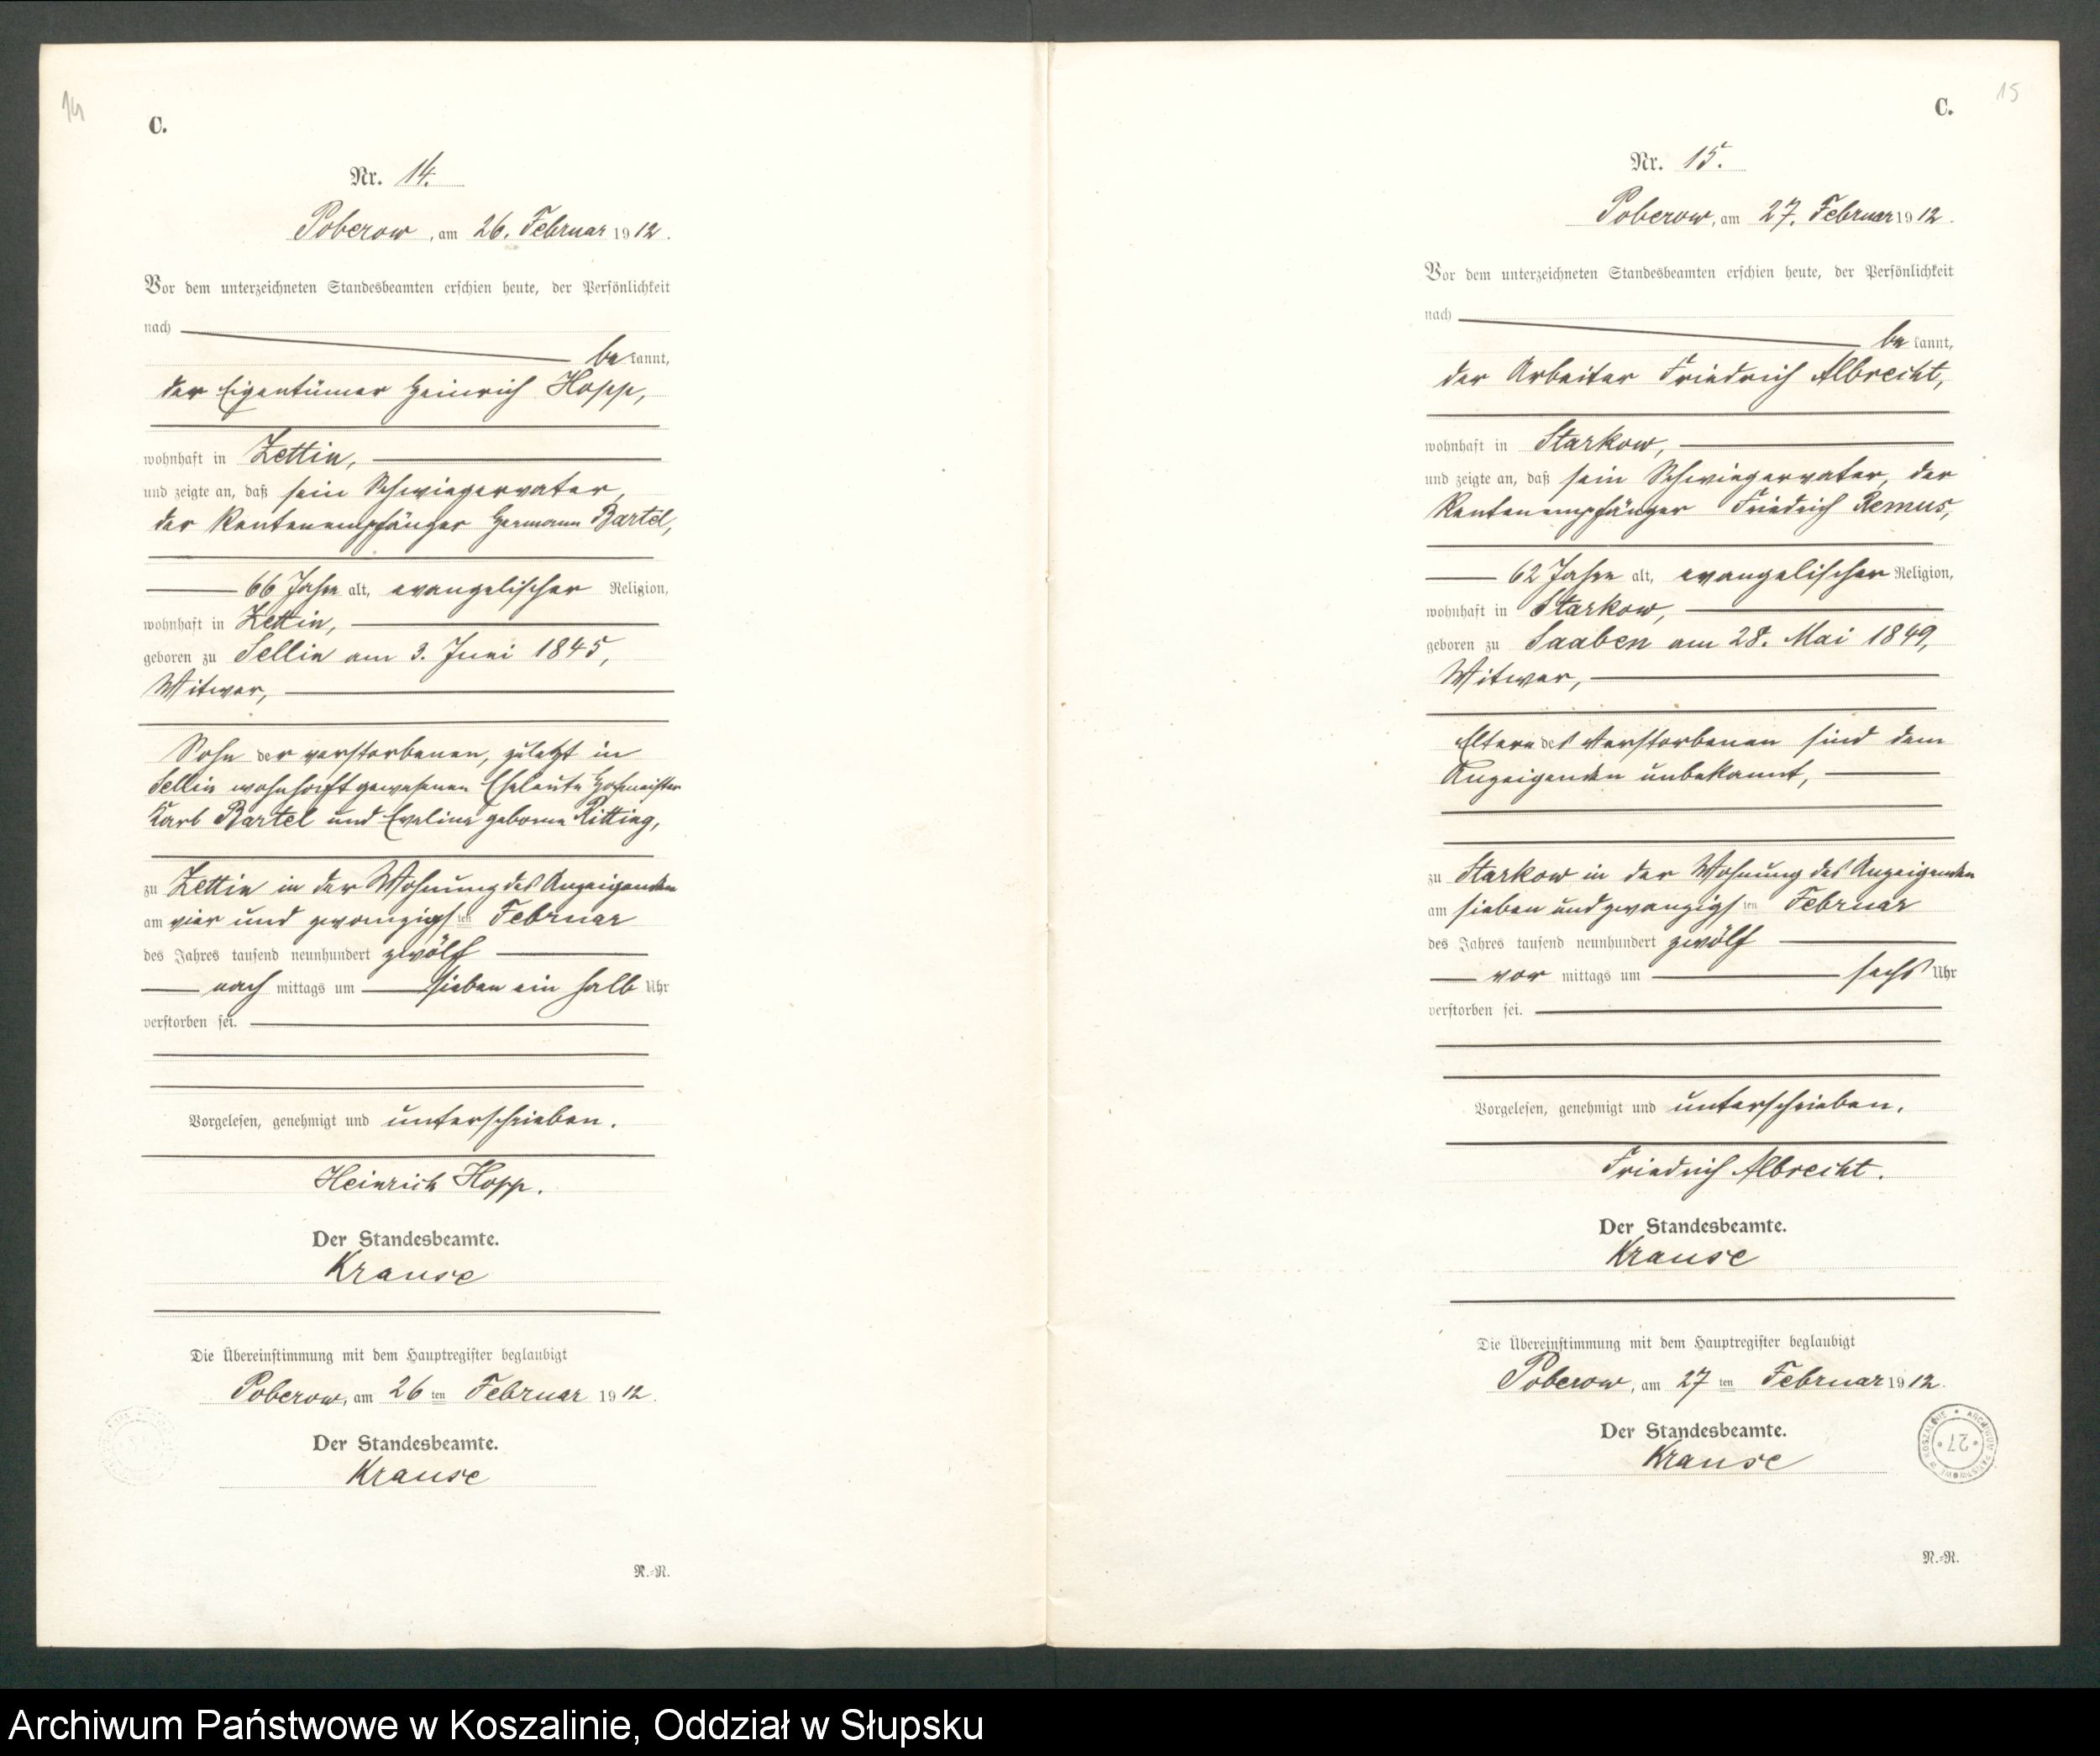 14
C.
Nr. 14.
Poberow, am 26. Februar 1912.
Vor dem unterzeichneten Standesbeamten erschien heute, der Persönlichkeit
nach
bekannt,
der Eigentümer Heinrich Hopp,
wohnhaft in Zettin,
und zeigte an, daß sein Schwiegervater,
der Rentenempfänger Hermann Bartel,
66 Jahre alt, evangelischer Religion,
wohnhaft in Zettin,
geboren zu Sellin am 3. Juni 1845,
Witwer,
Sohn der verstorbenen, zuletzt in
Sellin wohnhaft gewesenen Eheleute Hofmeister
Karl Bartel und Eveline geborene Ritting,
zu Zettin in der Wohnung des Anzeigenden
am vier und zwanzigsten Februar
des Jahres tausend neunhundert zwölf
nachmittags um sieben ein halb Uhr
verstorben sei.
Vorgelesen, genehmigt und unterschrieben.
Heinrich Hopp.
Der Standesbeamte.
Krause
Die Übereinstimmung mit dem Hauptregister beglaubigt
Poberow, am 26ten Februar 1912.
Der Standesbeamte.
Krause
N.-R.
15
C.
Nr. 15.
Poberow, am 27. Februar 1912.
Vor dem unterzeichneten Standesbeamten erschien heute, der Persönlichkeit
nach
bekannt,
der Arbeiter Friedrich Albrecht,
wohnhaft in Starkow,
und zeigte an, daß sein Schwiegervater, der
Rentenempfänger Friedrich Remus,
62 Jahre alt, evangelischer Religion,
wohnhaft in Starkow,
geboren zu Saaben am 28. Mai 1849,
Witwer,
Eltern des Verstorbenen sind dem
Anzeigenden unbekannt,
zu Starkow in der Wohnung des Anzeigenden
am sieben und zwanzigsten Februar
des Jahres tausend neunhundert zwölf
vormittags um sechs Uhr
verstorben sei.
Vorgelesen, genehmigt und unterschrieben.
Friedrich Albrecht.
Der Standesbeamte.
Krause
Die Übereinstimmung mit dem Hauptregister beglaubigt
Poberow, am 27ten Februar 1912.
Der Standesbeamte.
Krause
ARCHIWUM PAŃSTWOWE W KOSZALINIE
27
N.-R.
Archiwum Państwowe w Koszalinie, Oddział w Słupsku